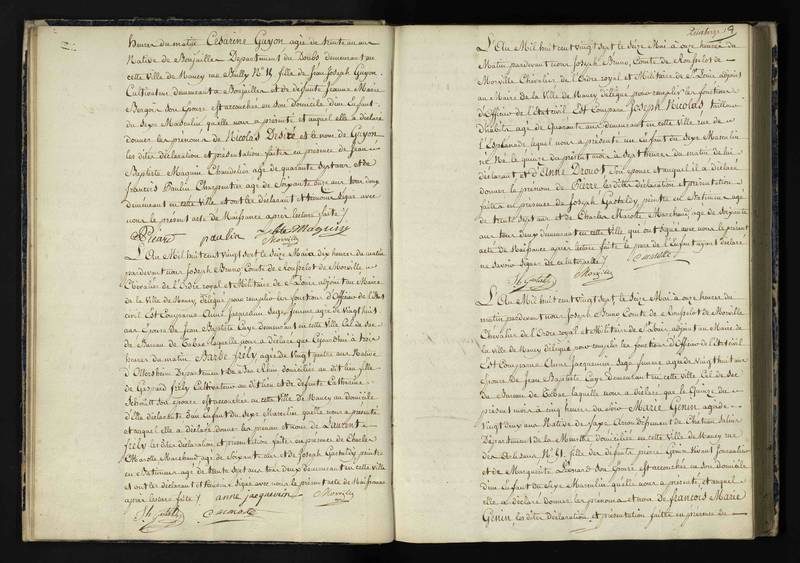 heures du matin Césarine Guyon agée de trente un ans
Native de Département du Doubs demeurant en
cette Ville de Nancy rue N° 14 fille de Jean Joseph Guyon
Cultivateur demeurant à et de défunte Jeanne Marie
son Epouse est accouchée en son domicile d'un Enfant
du Sexe Masculin qu'elle nous a présenté et auquel elle a déclaré
donner les prénoms de Nicolas Désiré et le nom de Guyon
les dites déclaration et présentation faites en présence de Jean
Baptiste Maguin agé de quarante sept ans et de
François Paulin Charpentier agé de Soixante onze ans tous deux
demeurant en cette Ville et ont les déclarant et témoins signé avec
nous le présent acte de Naissance après lecture faite
paulin Maguin
Morville
L'An Mil huit cent vingt sept le Seize Mai à dix heures du matin
pardevant nous Joseph Bruno Comte de Rousselot de Morville
Chevalier de l'Ordre royal et Militaire de St Louis adjoint au Maire
de la Ville de Nancy délégué pour remplir les fonctions d'Officier de l'Etat
civil Est Comparue Anne Jacquemin Sage femme agée de vingt huit
ans Epouse de Jean Baptiste Caye demeurant en cette Ville Cul de Sac
du Bureau de Tabac laquelle nous a déclaré que
heures du matin Barbe frely agée de Vingt quatre ans Native
d'Ottersheim Département du Bas Rhin domiciliée au dit lieu fille
de Gaspard frely Cultivateur au dit lieu et de défunte Catherine
Schmitt son épouse est accouchée en cette Ville de Nancy au domicile
d'Elle déclarante d'un Enfant du Sexe Masculin qu'elle nous a présenté
et auquel elle a déclaré donner les prénom et nom de Laurent
frely les dites déclaration et présentation faites en présence de Charles
Marotte Marchand agé de Soixante ans et de Joseph Gastaldy peintre
en Bâtimens agé de trente sept ans tous deux demeurant en cette Ville
et ont les déclarante et témoins signé avec nous le présent acte de Naissance
après lecture faite
anne jacquemin Morville
marotte
L'An Mil huit cent vingt sept le Seize Mai à onze heures du
Matin pardevant nous Joseph Bruno Comte de Rousselot de
Morville Chevalier de l'Ordre royal et Militaire de St Louis adjoint
au Maire de la Ville de Nancy délégué pour remplir les fonctions
d'Officier de l'Etat civil Est Comparu Joseph Nicolas tailleur
d'habits agé de Quarante ans demeurant en cette Ville rue de
l'Esplanade lequel nous a présenté un Enfant du Sexe Masculin
né le quinze du présent mois à Sept heures du matin de lui
déclarant et d'Anne Drouot Son épouse et auquel il a déclaré
donner le prénom de Pierre les dites déclaration et présentation
faites en présence de Joseph Gastaldy peintre en Bâtimens agé
de trente sept ans et de Charles Marotte Marchand agé de Soixante
ans tous deux demeurant en cette Ville qui ont signé avec nous le présent
acte de Naissance après lecture faite le père de l'Enfant ayant déclaré
ne savoir signer de ce interpellé
marotte
Morville
L'An Mil huit cent vingt sept le Seize Mai à onze heures du
matin pardevant nous Joseph Bruno Comte de Rousselot de Morville
Chevalier de l'Ordre royal et Militaire de St Louis adjoint au Maire de
la Ville de Nancy délégué pour remplir les fonctions d'Officier de l'Etat civil
Est Comparue Anne Jacquemin Sage femme agée de vingt huit ans
épouse de Jean Baptiste Caye demeurant en cette Ville Cul de Sac
du Bureau de Tabac laquelle nous a déclaré que le Quinze du
présent mois à cinq heures du Soir Marie Genin agée de
Vingt deux ans Native de faxe Arrondissement de Château Salins
Département de la Meurthe domiciliée en cette Ville de Nancy rue
des Artisans N° 51 fille des défunts pierre Genin Vivant
et de Marguerite Léonard Son Epouse Est accouchée en Son domicile
d'un Enfant du Sexe Masculin qu'elle nous a présenté et auquel
elle a déclaré donner les prénoms et nom de francois Marie
Génin, les dites Déclaration et présentation faites en présence de